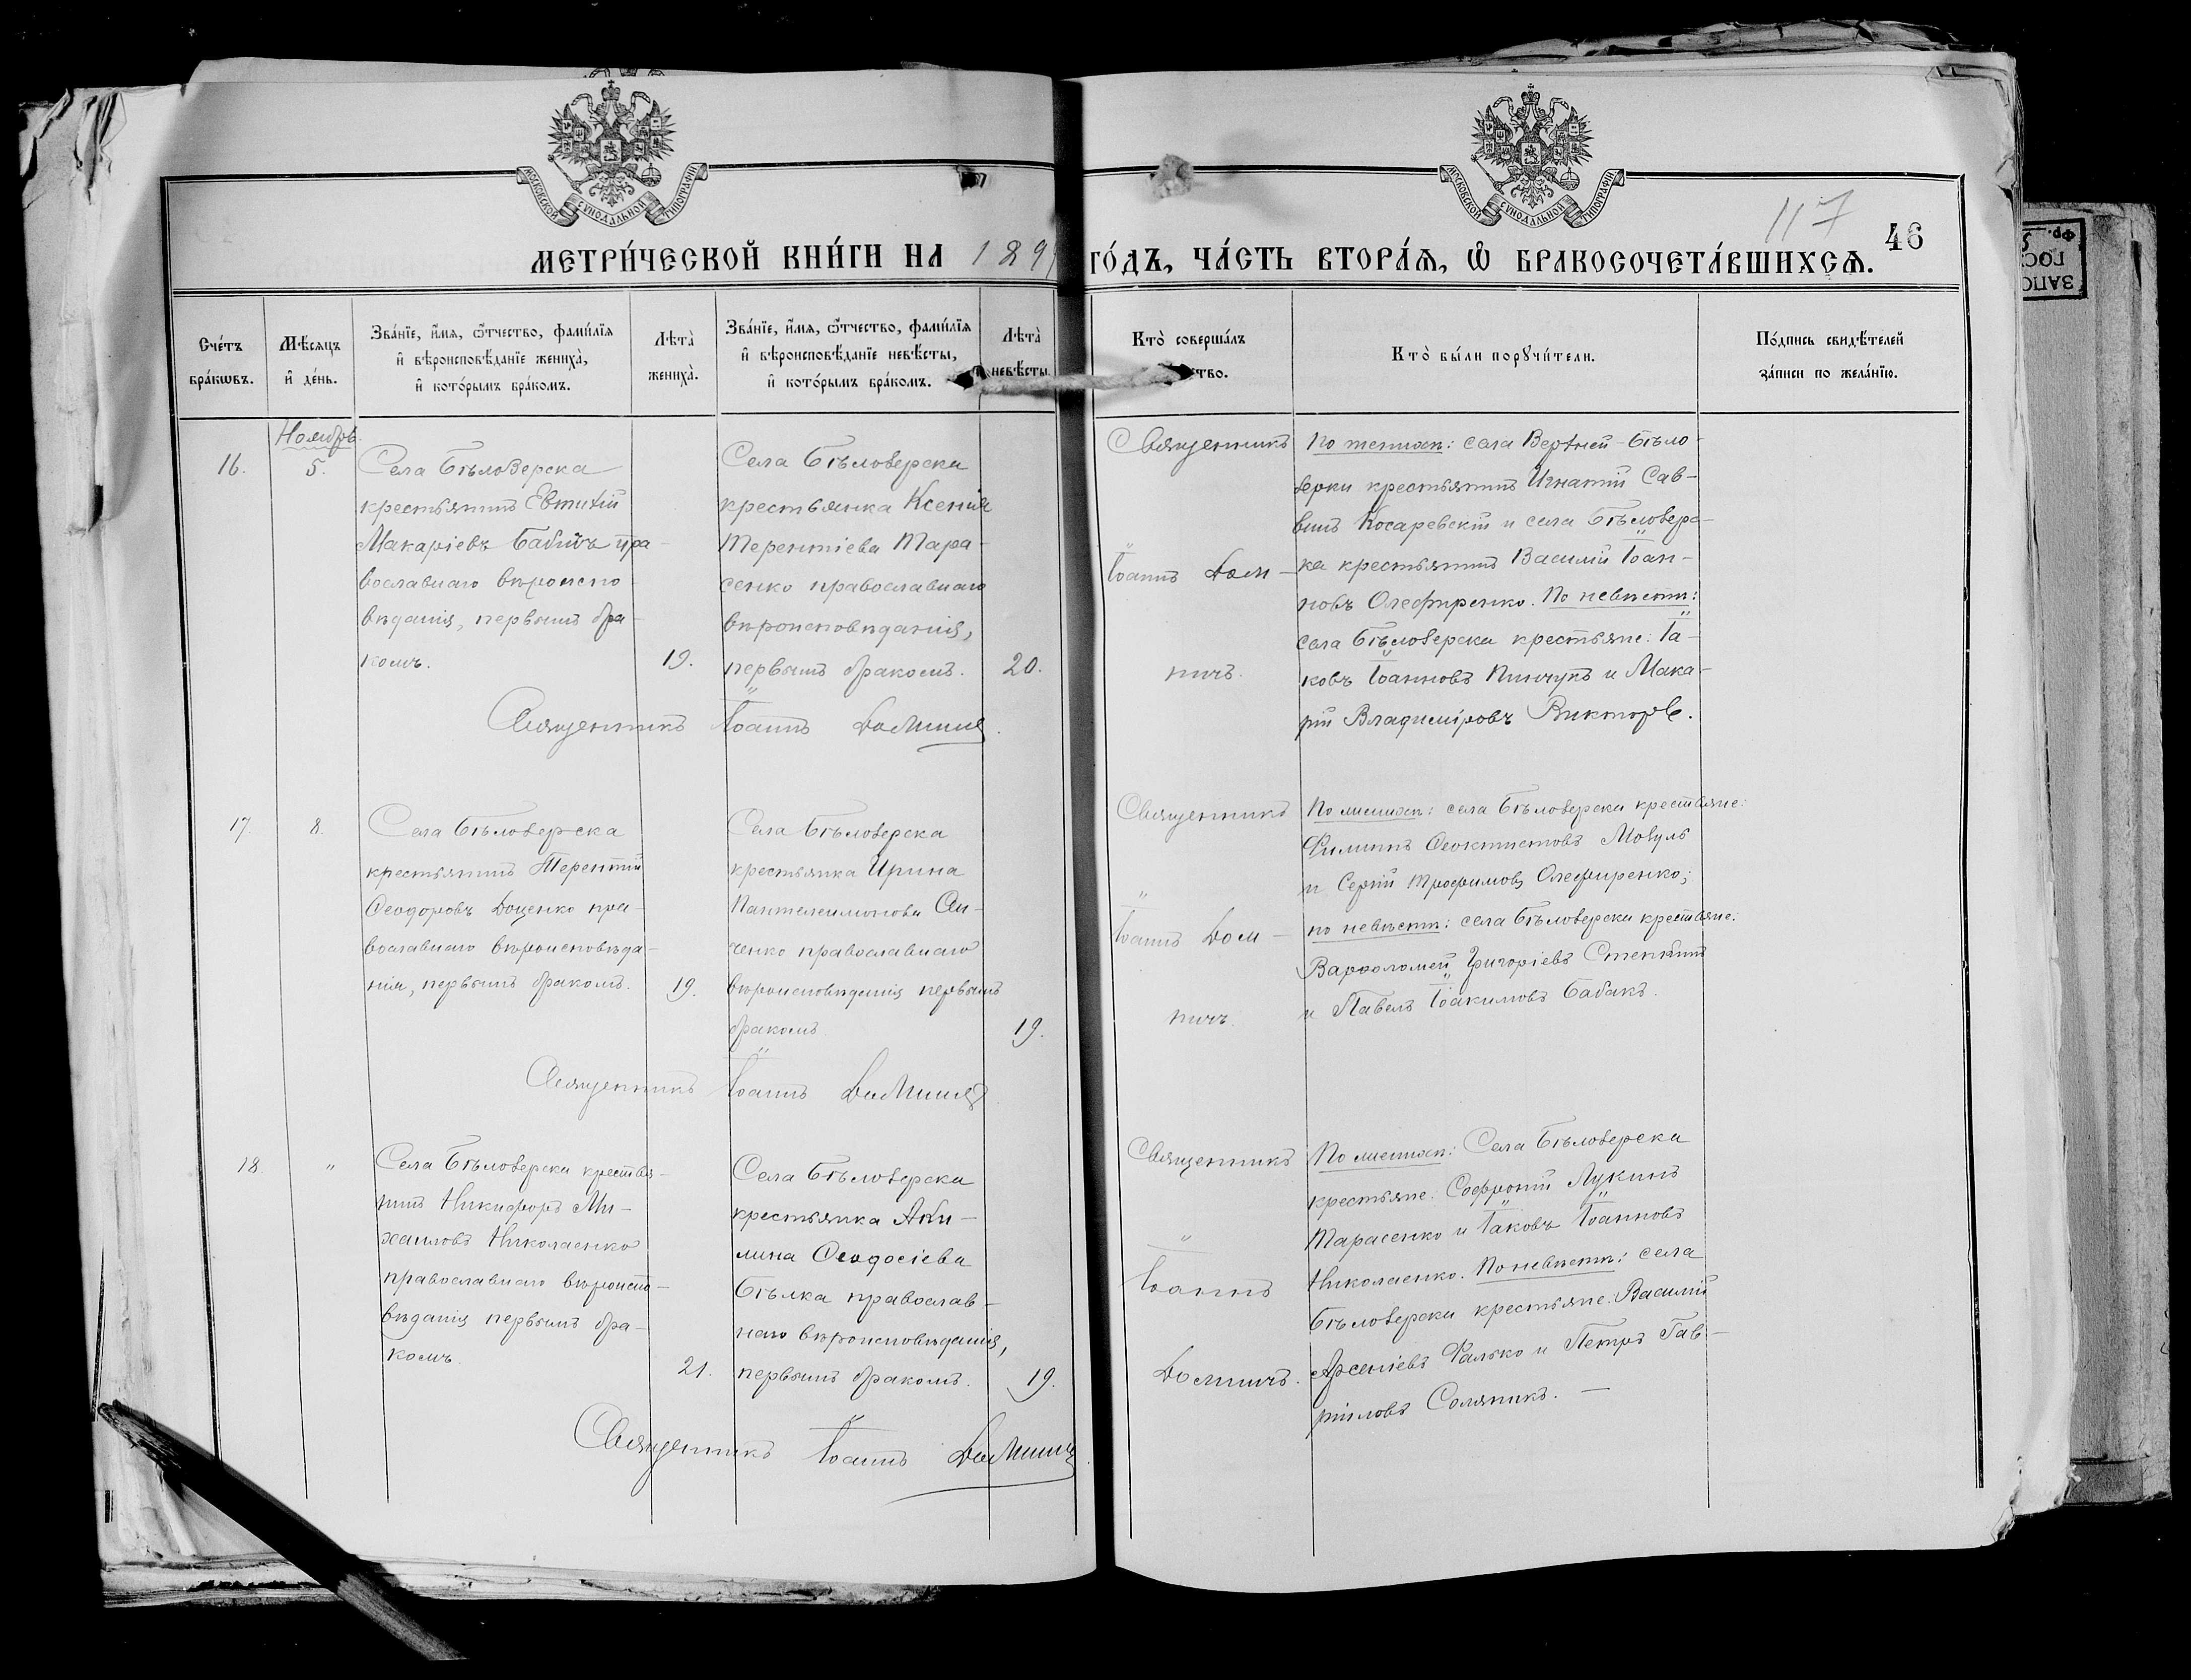 МОСКОВСКОЙ СѴНОДАЛЬНОЙ ТИПОГРАФІИ
МОСКОВСКОЙ СѴНОДАЛЬНОЙ ТИПОГРАФІИ
117
46
МЕТРИ́ЧЕСКОЙ КНИ́ГИ НА 189
ГО́ДЪ, ЧА́СТЬ ВТОРА́Ѧ, Ѽ БРАКОСОЧЕТА́ВШИХСѦ.
Сче́тъ бра́кѡвъ.
Мѣ́сяцъ и҆ де́нь.
Зва́нїе, и҆́мя, ѻ҆́тчество, фами́лїя
и҆ вѣроисповѣ́данїе жениха̀,
и҆ кото́рымъ бра́комъ.
Лѣта̀ жениха̀.
Зва́нїе, и҆́мя, ѻ҆́тчество, фами́лїя
и҆ вѣроисповѣ́данїе невѣ́сты,
и҆ кото́рымъ бра́комъ.
Лѣта̀ невѣ́сты
Кто̀ соверша́лъ
ство.
Кто̀ бы́ли порꙋчи́тели.
По́дпись свидѣ́телей
за́писи по жела́нїю.
Ноябрь
16. 5.
Села Бѣлозерска
крестьянинъ Евтихій
Макаріевъ Бабичъ пра-
вославнаго вѣроиспо-
вѣданія, первымъ бра-
комъ. 19.
Села Бѣлозерска
крестьянка Ксенія
Терентіева Тара-
сенко православнаго
вѣроисповѣданія,
первымъ бракомъ. 20.
Священникъ Іоаннъ Домнич
Священникъ
Іоаннъ Дом-
ничъ.
По женихѣ: села Верхней-Бѣло-
зерки крестьянинъ Игнатій Сав-
винъ Косаревскій и села Бѣлозерс-
ка крестьянинъ Василій Іоан-
новъ Олефиренко. По невѣстѣ:
села Бѣлозерска крестьяне: Іа-
ковъ Іоанновъ Пинчукъ и Мака-
рій Владиміровъ
17 8.
Села Бѣлозерска
крестьянинъ Терентій
Ѳеодоровъ Доценко пра-
вославнаго вѣроисповѣда-
нія, первымъ бракомъ. 19.
Села Бѣлозерска
крестьянка Ирина
Пантелеимонова
ченко православнаго
вѣроисповѣданія первымъ
бракомъ 19.
Священникъ Іоаннъ Домнич
Священникъ
Іоаннъ Дом-
ничъ.
По женихѣ: села Бѣлозерска крестьяне:
Филиппъ Ѳеоктистовъ
и Сергій Трофимовъ Олефиренко;
по невѣстѣ: села Бѣлозерска крестьяне:
Варѳоломей Григоріевъ
и Павелъ Іоакимовъ Бабакъ.
18 "
Села Бѣлозерска крестья-
нинъ Никифоръ Ми-
хаиловъ Николаенко
православнаго вѣроиспо-
вѣданія первымъ бра-
комъ 21.
Села Бѣлозерска
крестьянка Аки-
лина Ѳеодосіева
Бѣлка православ-
наго вѣроисповѣданія,
первымъ бракомъ. 19.
Священникъ Іоаннъ Домничъ
Священникъ
Іоаннъ
Домничъ.
По женихѣ: Села Бѣлозерска
крестьяне: Софроній Лукинъ
Тарасенко и Іаковъ Іоанновъ
Николаенко. По невѣстѣ: села
Бѣлозерска крестьяне: Василій
Арсеніевъ Фалько и Петръ Гав-
ріиловъ Соляникъ. —